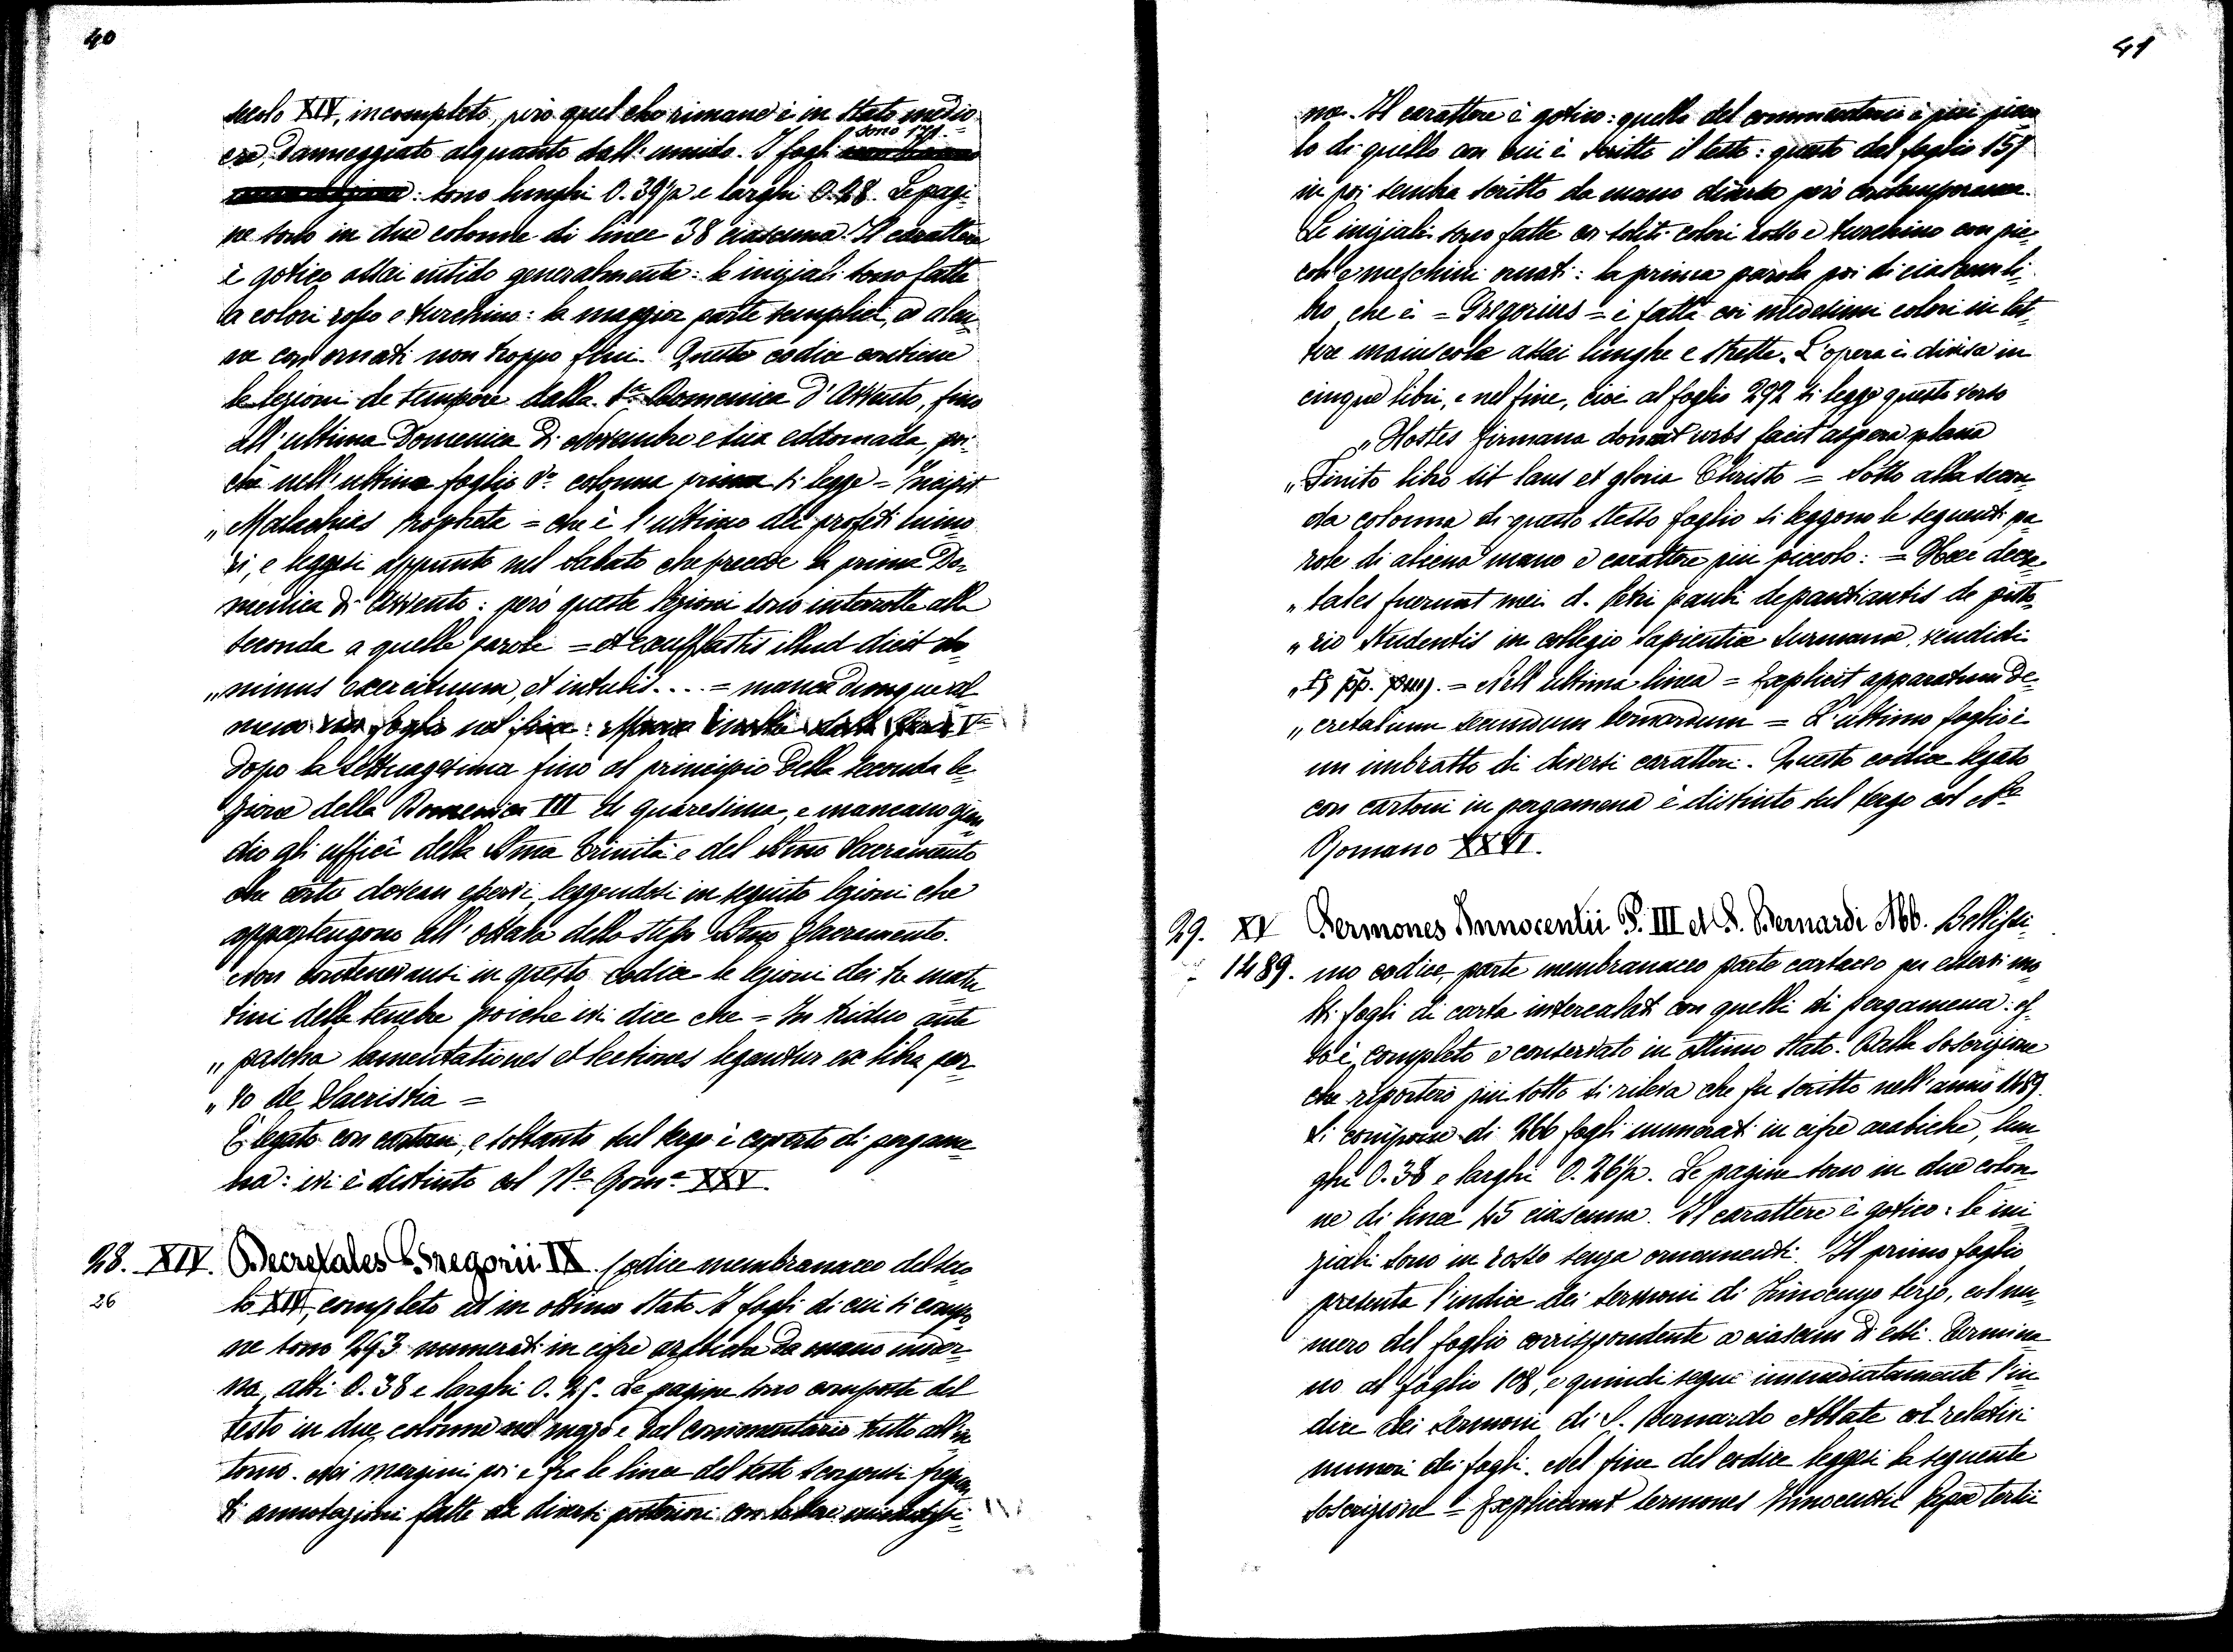 40
secolo XIV, incompleto, però quel che rimane è in stato medio
cre, danneggiato alquanto dall'umido. I fogli sono 171.
: sono lunghi 0.39½ e larghi 0.28. Le pagi-
ne sono in due colonne di linee 38 ciascuna. Il carattere
è gotico assai nitido generalmente: le iniziali sono fatte
a colori rosso e turchino: la maggior parte semplici, ed alcu-
ne con ornati non troppo fini. Questo codice contiene
le lezioni de tempore dalla 1ª Domenica d'Avvento, fino
all'ultima Domenica di Novembre e sua eddomada, poi-
chè nell'ultimo foglio vº colonna prima si legge = Incipit
„ Malachies propheta = che è l'ultimo dei profeti mino-
ri, e leggesi appunto nel Sabato che precede la prima Do-
menica di Avvento: però queste lezioni sono interrotte alla
seconda a quelle parole = et exufflastis illud dicit do-
„ minus exercituum, et intulis.... = manca dunque al-
meno un foglio nel fine:
dopo la Settuagesima fino al principio della seconda le-
zione della Domenica III di quaresima, e mancano
gli ufficî della SSma Trinità e del SSmo Sacramento
che certo dovean esservi, leggendosi in seguito lezioni che
appartengono all'ottava dello stesso SSmo Sacramento.
Non contenevansi in questo codice le lezioni dei tre matu-
tini delle tenebre poichè ivi dice che = In triduo ante
„ pascha lamentationes et lectiones legantur ex libro par-
„ vo de Sacristia =
È legato con cartoni, e soltanto sul tergo è coperto di pergame-
na: ivi è distinto col Nº Romº XXV.
28. XIV. Decretales Gregorii IX. Codice membranaceo del seco-
26 lo XIV, completo ed in ottimo stato. I fogli di cui si compo-
ne sono 293 numerati in cifre arabiche da mano moder-
na, alti 0.38 e larghi 0.25. Le pagine sono composte del
testo in due colonne nel mezzo e dal commentario tutto all'in-
torno. Nei margini poi e fra le linee del testo scorgonsi frequen-
ti annotazioni fatte da diversi posteriori con lettere
41
na. Il carattere è gotico: quello del commentario è più picco-
lo di quello con cui è scritto il testo: questo dal foglio 151
in poi sembra scritto da mano diversa però contemporanea.
Le iniziali sono fatte coi soliti colori rosso e turchino con pic-
coli e meschini ornati: la prima parola poi di ciascun li-
bro, che è = Gregorius = è fatta coi medesimi colori in let-
tere maiuscole assai lunghe e strette. L'opera è divisa in
cinque libri, e nel fine, cioè al foglio 292 si legge questo verso
„ Hostes firmana domat urbs facit aspera plana
„ Finito libro sit laus et gloria Christo = Sotto alla secon-
da colonna di questo stesso foglio si leggono le seguenti pa-
role di aliena mano e carattere più piccolo: = Hee decre-
„ tales fuerunt mei d. Petri pauli
„ rio studentis in collegio Sapientia vendidi
„ pp. = Nell'ultima linea = Explicit apparatum De-
„ cretalium secundum bernardum = L'ultimo foglio è
un imbratto di diversi caratteri. Questo codice legato
con cartoni in pergamena è distinto sul tergo col Nº
Romano XXVI.
29. XV Sermones Innocentii P. III et S. Bernardi Abb. Bellissi-
1489. mo codice, parte membranaceo parte cartaceo per esservi mol-
ti fogli di carta intercalati con quelli di pergamena: es-
so è completo e conservato in ottimo stato. Dalla soscrizione
che riporterò più sotto si rileva che fu scritto nell'anno 1489.
Si compone di 266 fogli numerati in cifre arabiche, lun-
ghi 0.38 e larghi 0.26½. Le pagine sono in due colon-
ne di linee 45 ciascuna. Il carattere è gotico: le ini-
ziali sono in rosso senza ornamenti. Il primo foglio
presenta l'indice dei sermoni di Innocenzo terzo, col nu-
mero del foglio corrispondente a ciascun di essi. Termina-
no al foglio 108, e quindi segue immediatamente l'in-
dice dei sermoni di S. Bernardo Abbate coi relativi
numeri dei fogli. Nel fine del codice leggesi la seguente
soscrizione = Expliciunt sermones Innocentii Papæ tertii